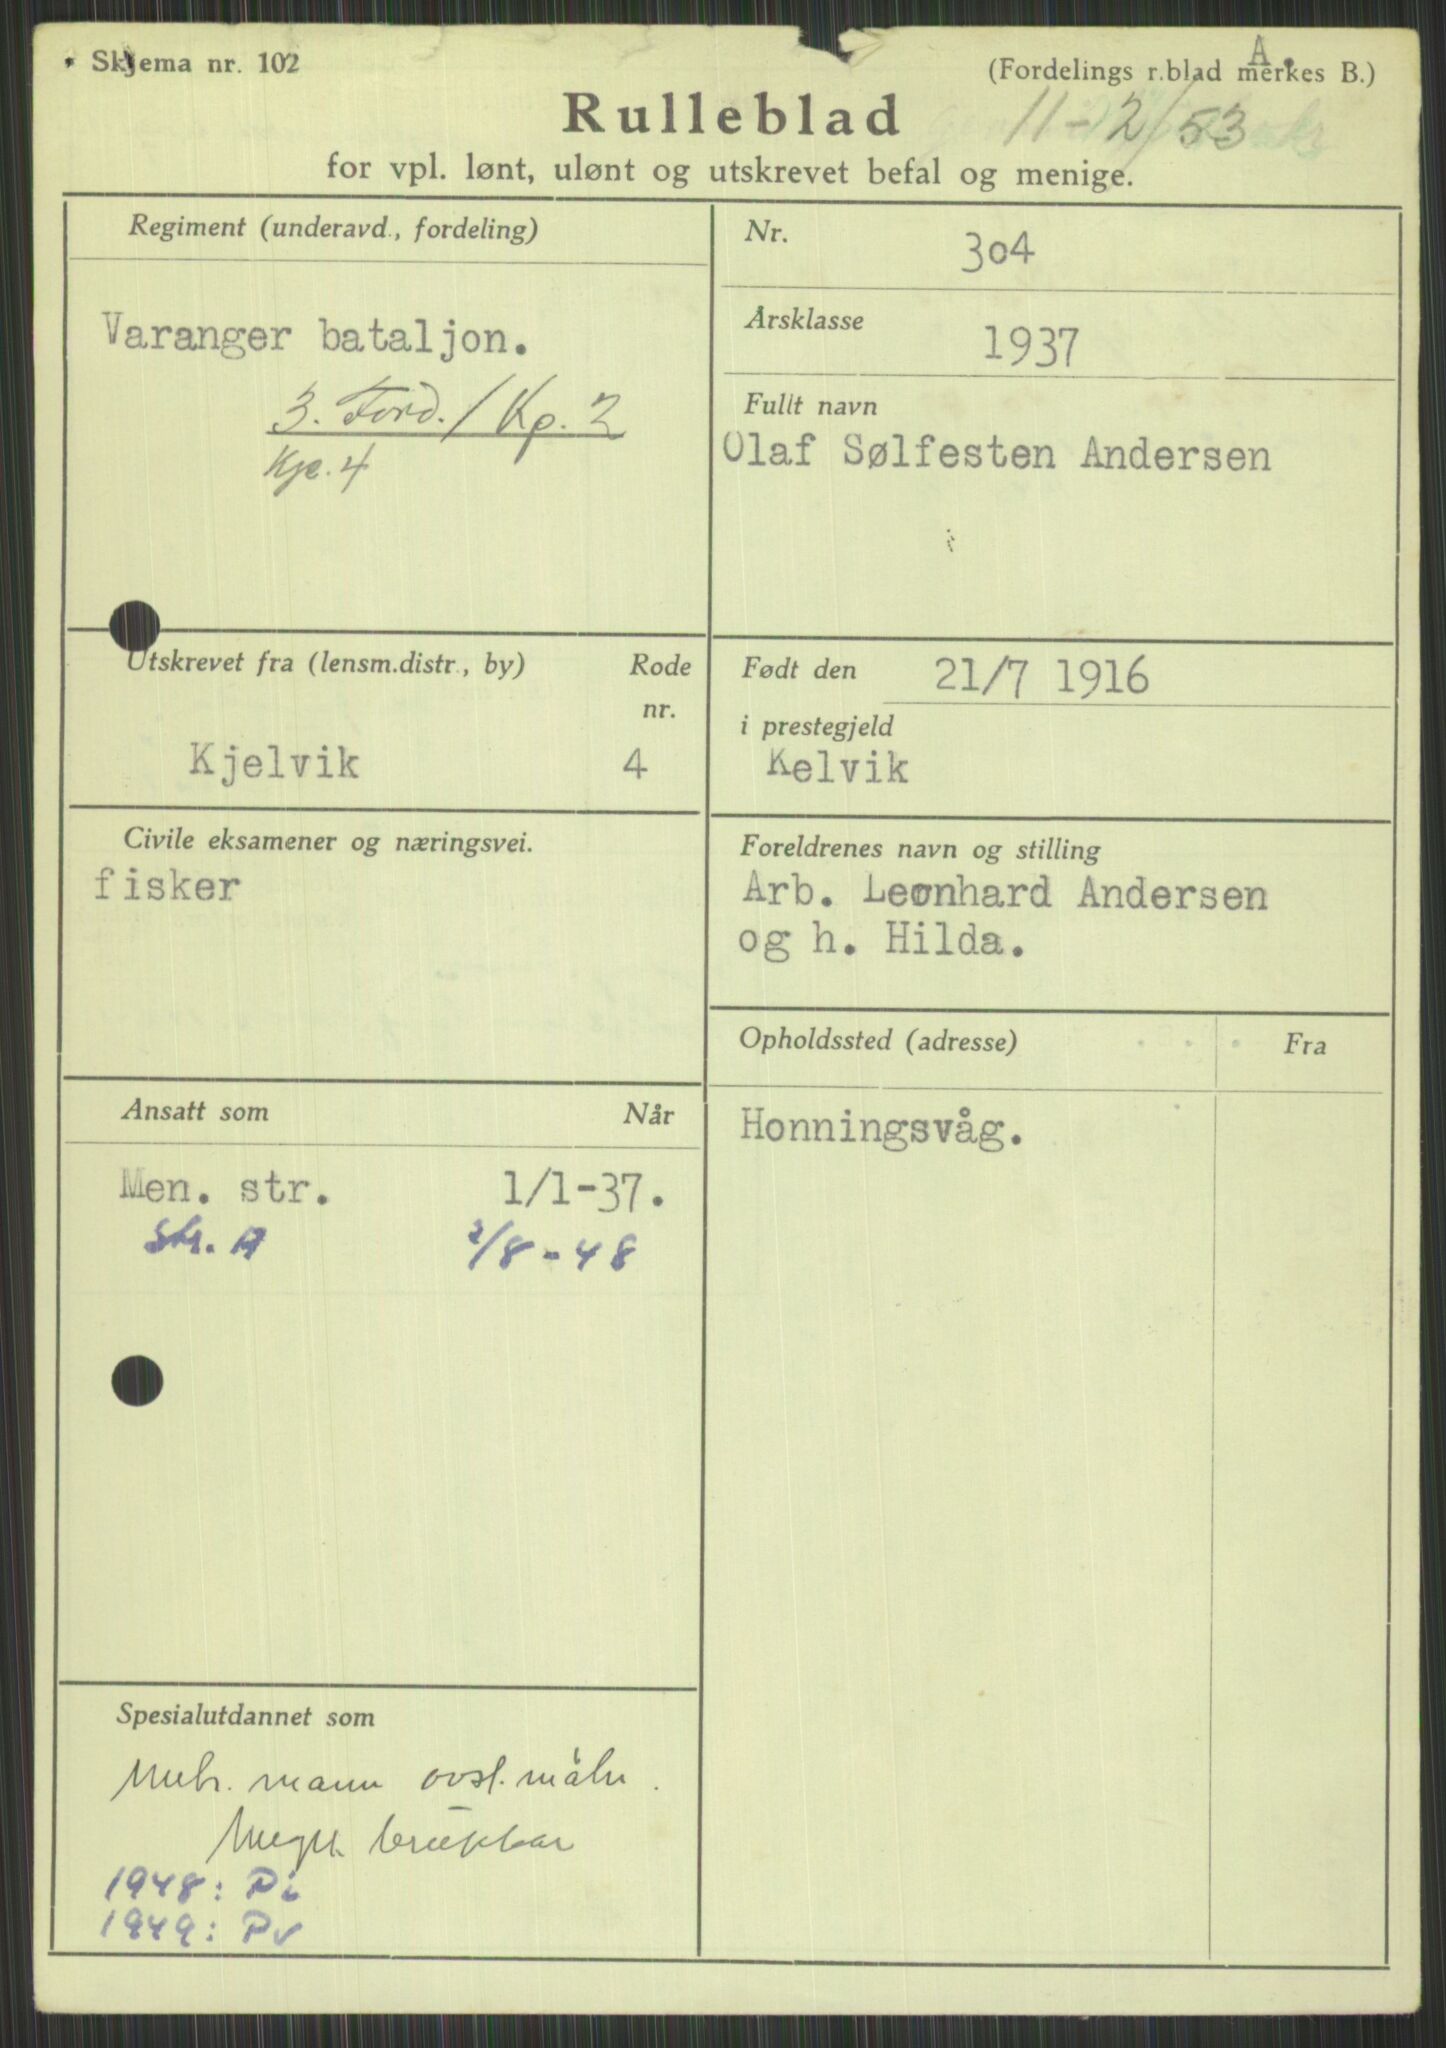 Skjema nr. 102
A.
(Fordelings r.blad merkes B.)
Rulleblad
11-2/53
for vpl. lønt, ulønt og utskrevet befal og menige.
Regiment (underavd., fordeling)
Varanger bataljon.
3. Ford. / Kp. 2
Kje. 4
Nr.
304
Årsklasse
1937
Fullt navn
Olaf Sølfesten Andersen
Utskrevet fra (lensm.distr., by)
Rode
nr.
Kjelvik 4
Født den 21/7 1916
i prestegjeld
Kelvik
Civile eksamener og næringsvei.
fisker
Foreldrenes navn og stilling
Arb. Leonhard Andersen
og h. Hilda.
Opholdssted (adresse) Fra
Honningsvåg.
Ansatt som Når
Men. str. 1/1-37.
Str. A 2/8-48
Spesialutdannet som
Mitr. mann avst.måler.
Meget brukbar
1948: Pi
1949: Pv